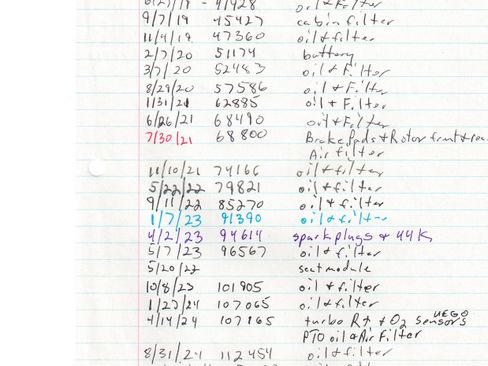 6/27/19 - 41928 oil & filter
9/7/19 45427 cabin filter
11/4/19 47360 oil & filter
2/7/20 51174 battery
3/7/20 52483 oil & Filter
8/29/20 57586 oil & Filter
1/31/21 62885 oil & Filter
6/26/21 68490 oil & Filter
7/30/21 68800 Brake Pads & Rotor front &
Air filter
11/10/21 74166 oil & filter
5/22/22 79821 oil & filter
9/11/22 85270 oil & filter
1/7/23 91390 oil & filter
4/2/23 94614 spark plugs & 44K
5/7/23 96567 oil & filter
5/20/22 seat module
10/8/23 101905 oil & filter
1/27/24 107065 oil & filter
UEGO
4/14/24 107165 turbo Rt & O2 sensors
PTO oil & Air Filter
8/31/24 112454 oil & filter